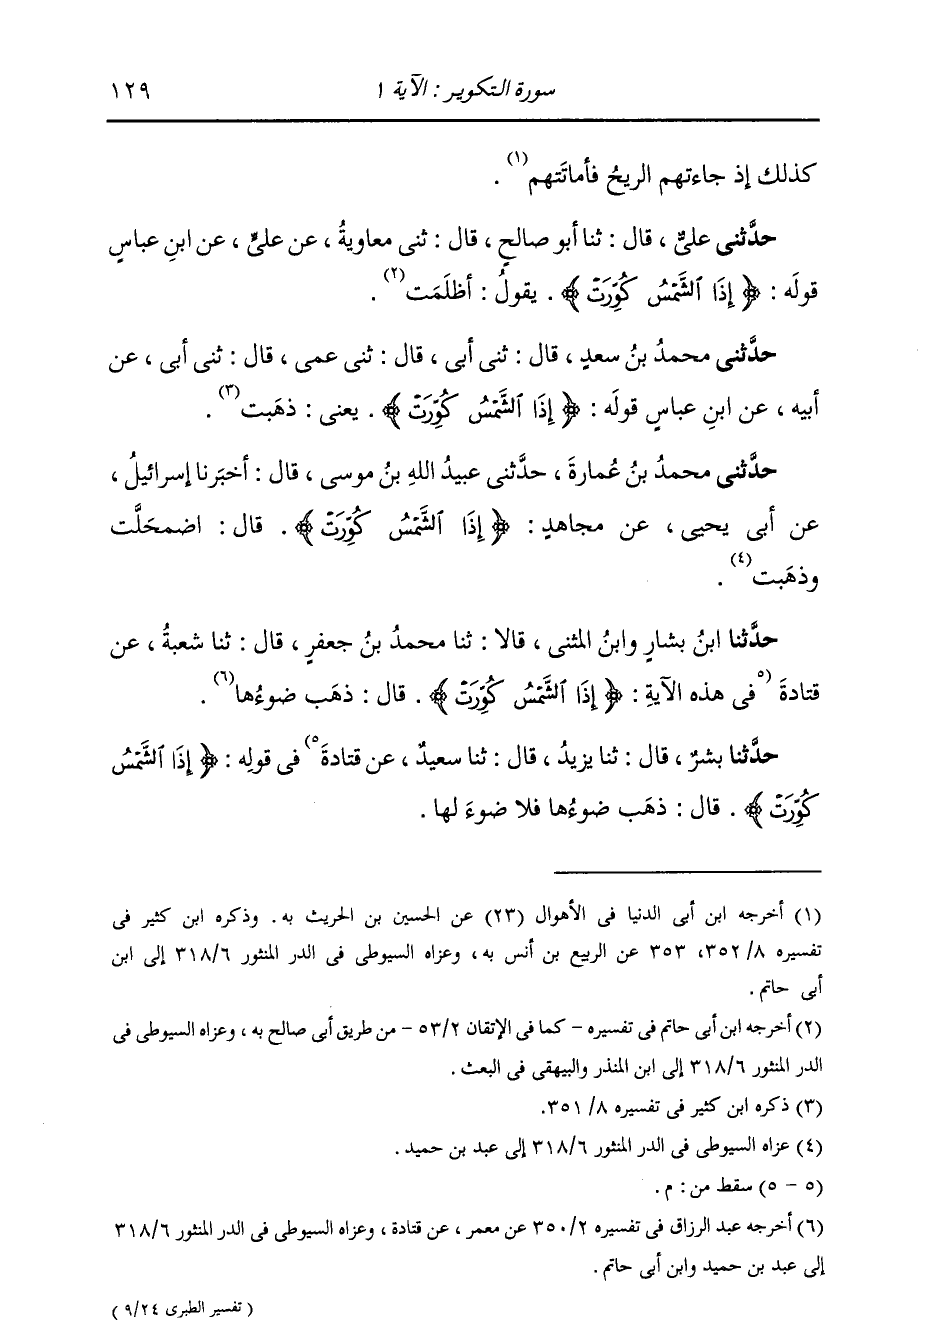 سورة التكوير : الآية ١ ١٢٩
كذلك إذ جاءتهم الريحُ فأماتَتهم(١) .
حدَّثنى علىٌّ ، قال : ثنا أبو صالحٍ ، قال : ثنى معاويةُ ، عن علىٍّ ، عن ابنِ عباسٍ
قولَه : ﴿ إِذَا ٱلشَّمْسُ كُوِّرَتْ ﴾ . يقولُ : أظلَمَت(٢) .
حدَّثنى محمدُ بنُ سعدٍ ، قال : ثنى أبى ، قال : ثنى عمى ، قال : ثنى أبى ، عن
أبيه ، عن ابنِ عباسٍ قولَه : ﴿ إِذَا ٱلشَّمْسُ كُوِّرَتْ ﴾ . يعنى : ذهَبت(٣) .
حدَّثنى محمدُ بنُ عُمارةَ ، حدَّثنى عبيدُ اللهِ بنُ موسى ، قال : أخبَرنا إسرائيلُ ،
عن أبى يحيى ، عن مجاهدٍ : ﴿ إِذَا ٱلشَّمْسُ كُوِّرَتْ ﴾ . قال : اضمحَلَّت
وذهَبت(٤) .
حدَّثنا ابنُ بشارٍ وابنُ المثنى ، قالا : ثنا محمدُ بنُ جعفرٍ ، قال : ثنا شعبةُ ، عن
قتادةَ (٥فى هذه الآيةِ : ﴿ إِذَا ٱلشَّمْسُ كُوِّرَتْ ﴾ . قال : ذهَب ضوءُها(٦) .
حدَّثنا بشرٌ ، قال : ثنا يزيدُ ، قال : ثنا سعيدٌ ، عن قتادةَ٥) فى قولِه : ﴿ إِذَا ٱلشَّمْسُ
كُوِّرَتْ ﴾ . قال : ذهَب ضوءُها فلا ضوءَ لها .
(١) أخرجه ابن أبى الدنيا فى الأهوال (٢٣) عن الحسين بن الحريث به . وذكره ابن كثير فى
تفسيره ٨/ ٣٥٢، ٣٥٣ عن الربيع بن أنس به ، وعزاه السيوطى فى الدر المنثور ٣١٨/٦ إلى ابن
أبى حاتم .
(٢) أخرجه ابن أبى حاتم فى تفسيره - كما فى الإتقان ٥٣/٢ - من طريق أبى صالح به ، وعزاه السيوطى فى
الدر المنثور ٣١٨/٦ إلى ابن المنذر والبيهقى فى البعث .
(٣) ذكره ابن كثير فى تفسيره ٨/ ٣٥١.
(٤) عزاه السيوطى فى الدر المنثور ٣١٨/٦ إلى عبد بن حميد .
(٥ - ٥) سقط من : م .
(٦) أخرجه عبد الرزاق فى تفسيره ٣٥٠/٢ عن معمر ، عن قتادة ، وعزاه السيوطى فى الدر المنثور ٣١٨/٦
إلى عبد بن حميد وابن أبى حاتم .
( تفسير الطبرى ٩/٢٤ )